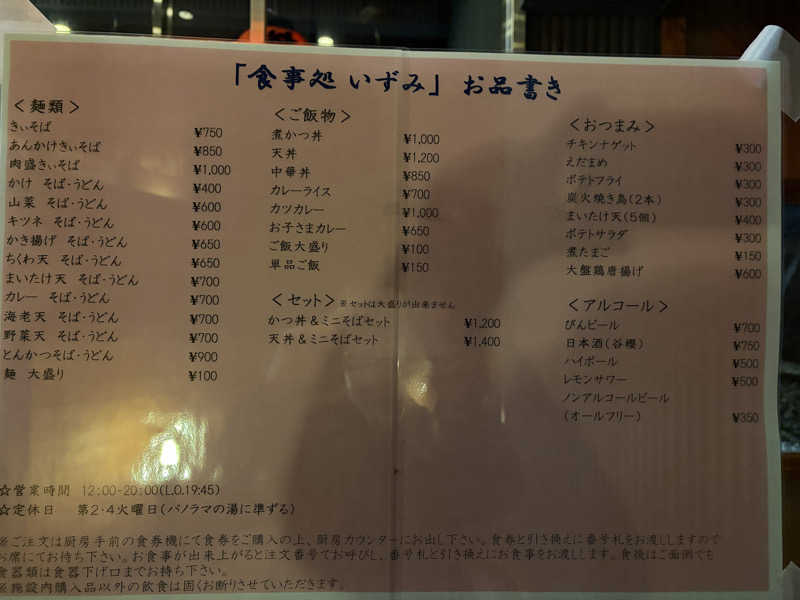 「食事処 いずみ」 お品書き
＜麺類＞
きぃそば ¥750
あんかけきぃそば ¥850
肉盛きぃそば ¥1,000
かけ そば・うどん ¥400
山菜 そば・うどん ¥600
キツネ そば・うどん ¥600
かき揚げ そば・うどん ¥650
ちくわ天 そば・うどん ¥650
まいたけ天 そば・うどん ¥700
カレー そば・うどん ¥700
海老天 そば・うどん ¥700
野菜天 そば・うどん ¥700
とんかつそば・うどん ¥900
麺 大盛り ¥100
＜ご飯物＞
煮かつ丼 ¥1,000
天丼 ¥1,200
中華丼 ¥850
カレーライス ¥700
カツカレー ¥1,000
お子さまカレー ¥650
ご飯大盛り ¥100
単品ご飯 ¥150
＜セット＞ ※セットは大盛りが出来ません
かつ丼＆ミニそばセット ¥1,200
天丼＆ミニそばセット ¥1,400
＜おつまみ＞
チキンナゲット ¥300
えだまめ ¥300
ポテトフライ ¥300
炭火焼き鳥(2本) ¥300
まいたけ天(5個) ¥400
ポテトサラダ ¥300
煮たまご ¥150
大盤鶏唐揚げ ¥600
＜アルコール＞
びんビール ¥700
日本酒(谷櫻) ¥750
ハイボール ¥500
レモンサワー ¥500
ノンアルコールビール
(オールフリー) ¥350
☆営業時間 12:00-20:00(L.O.19:45)
☆定休日 第2・4火曜日(パノラマの湯に準ずる)
※ご注文は厨房手前の食券機にて食券をご購入の上、厨房カウンターにお出し下さい。食券と引き換えに番号札をお渡ししますので
お席にてお待ち下さい。お食事が出来上がると注文番号でお呼びし、番号札と引き換えにお食事をお渡しします。食後はご面倒でも
食器類は食器下げ口までお持ち下さい。
※施設内購入品以外の飲食は固くお断りさせていただきます。